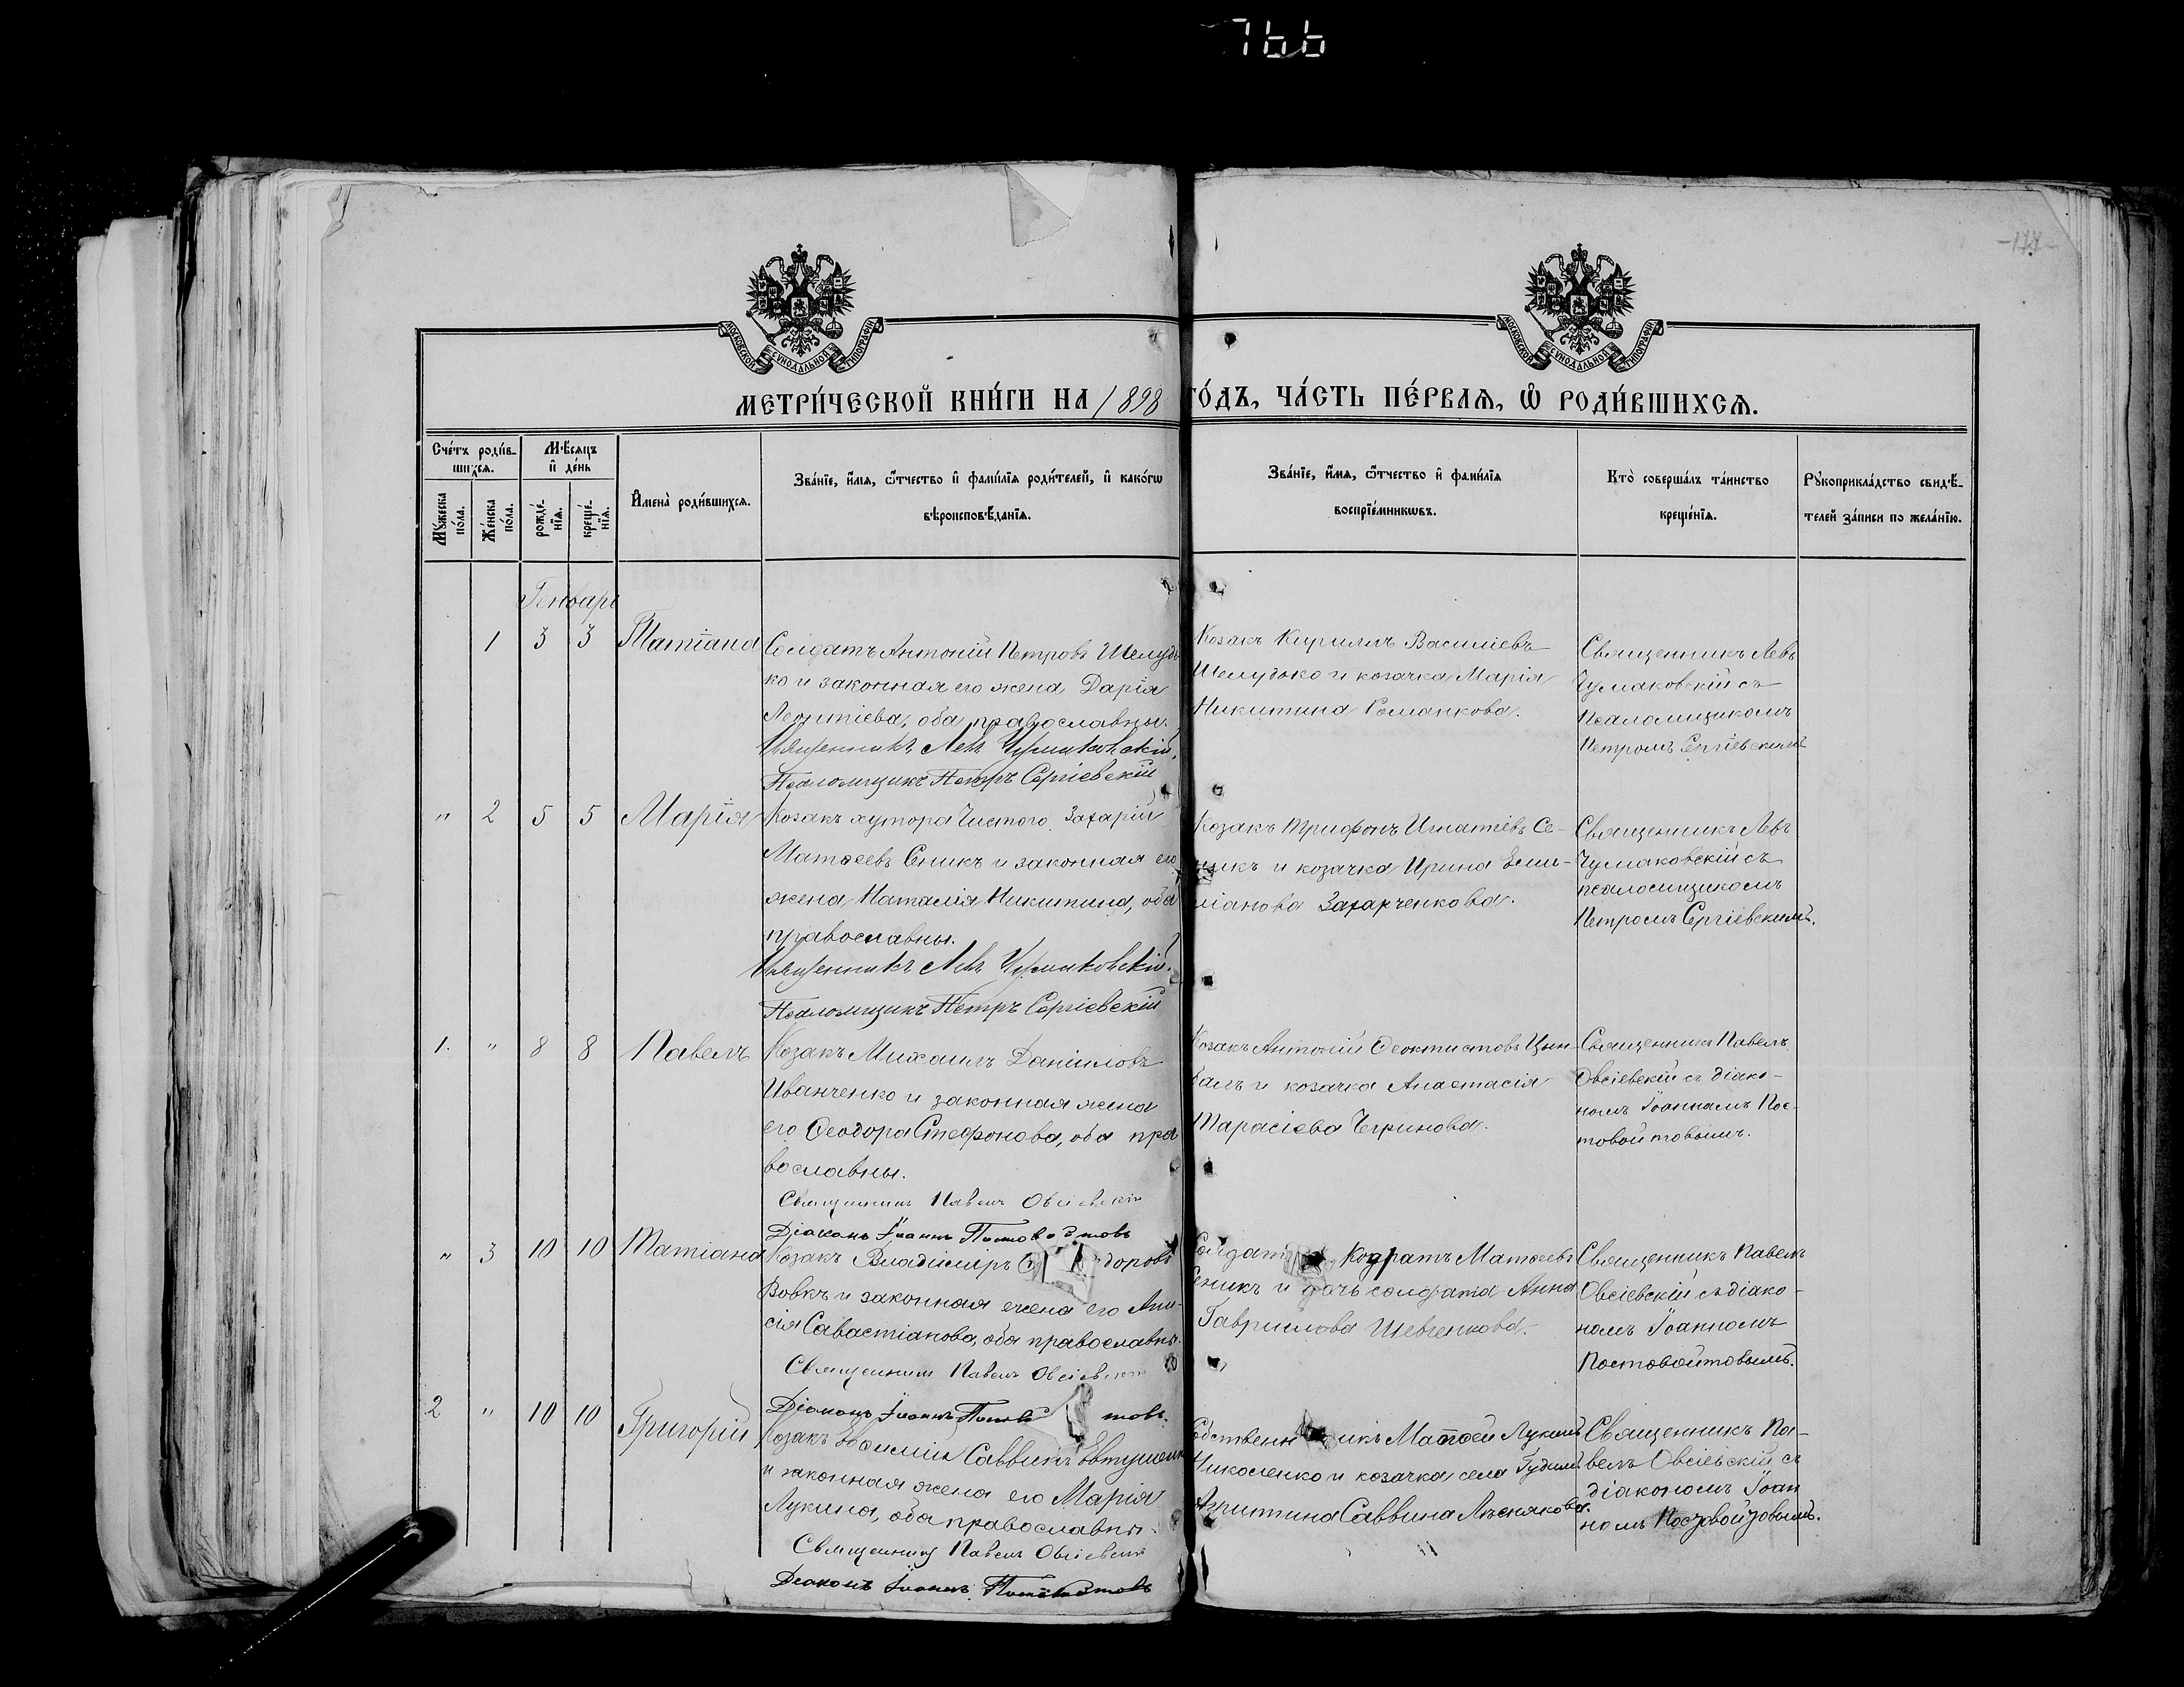 766
-178-
МОСКОВСКОЙ СѴНОДАЛЬНОЙ ТИПОГРАФІИ
МОСКОВСКОЙ СѴНОДАЛЬНОЙ ТИПОГРАФІИ
МЕТРИ́ЧЕСКОЙ КНИ́ГИ НА 1898 ГО́ДЪ, ЧА́СТЬ ПЕ́РВАЯ, Ѽ РОДИ́ВШИХСЯ.
Сче́тъ роди́в-
шихся.
Мꙋ́жеска по́ла.
Же́нска по́ла.
Мѣ́сяцъ и҆ де́нь
рожде́-нїя.
креще́-нїя.
И҆мена̀ роди́вшихся.
Зва́нїе, и҆́мя, ѻ҆́тчество и҆ фамѝлїя роди́телей, и҆ како́гѡ
вѣроисповѣ́данїя.
Зва́нїе, и҆́мя, ѻ҆́тчество и҆ фами́лїя
воспрїе́мникѡвъ.
Кто̀ соверша́лъ та́инство
креще́нїя.
Рꙋкоприкла́дство свидѣ́-
телей за́писи по жела́нїю.
Генварь
1 3 3 Татіана
Солдатъ Антоній Петровъ Шелудь-
ко и законная его жена Дарія
Леонтіева, оба православны.
Священникъ Левъ Чумаковскій.
Псаломщикъ Петръ Сергіевскій
Козакъ Кириллъ Василіевъ
Шелудько и козачка Марія
Никитина Романкова.
Священникъ Левъ
Чумаковскій съ
Псаломщикомъ
Петромъ Сергіевскимъ
" 2 5 5 Марія
Козакъ хутора Чистого Захарій
Матѳеевъ Сникъ и законная его
жена Наталія Никитина, оба
православны.
Священникъ Левъ Чумаковскій.
Псаломщикъ Петръ Сергіевскій
Козакъ Трифонъ Игнатіевъ Се-
никъ и козачка Ирина Еми-
ліанова Захарченкова.
Священникъ Левъ
Чумаковскій съ
псаломщикомъ
Петромъ Сергіевскимъ.
1. " 8 8 Павелъ
Козакъ Михаилъ Даніиловъ
Иванченко и законная жена
его Ѳеодора Стефонова, оба пра
вославны.
Священникъ Павелъ Овсіевскій
Діаконъ Іоаннъ Постовойтовъ
Козакъ Антоній Ѳеоктистовъ Цын-
балъ и козачка Анастасія
Тарасіева
Священникъ Павелъ
Овсіевскій съ діако-
номъ Іоанномъ Пос-
товойтовымъ.
" 3 10 10 Татіана
Козакъ Владиміръ доровъ
Вовкъ и законная жена его Ани-
сія Савастіанова, оба православны.
Священникъ Павелъ Овсіевскій
Діаконъ Іоаннъ товъ.
Солдатъ Кодратъ Матѳеевъ
Сеникъ и дочь солдата Анна
Гавриилова Шевченкова.
Священникъ Павелъ
Овсіевскій съ діако-
номъ Іоанномъ
Постовойтовымъ.
2 " 10 10 Григорій
Козакъ Саввинъ Евтушенко
и законная жена его Марія
Лукина, оба православны.
Священникъ Павелъ Овсіевскій
Діаконъ Іоаннъ Постовойтовъ
икъ Матѳей Лукинъ
Николенко и козачка села
Саввина Лѣснякова.
Священникъ Па-
велъ Овсіевскій съ
діакономъ Іоан
номъ Постовойтовымъ.